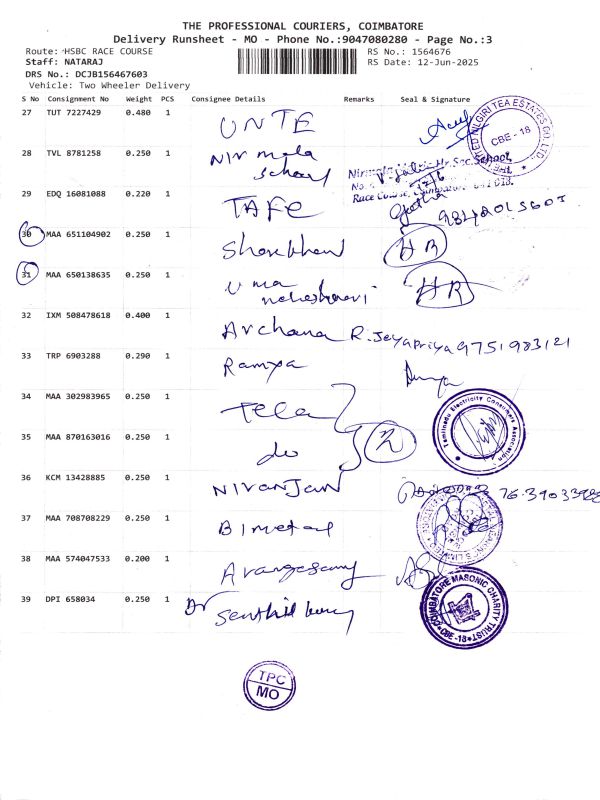 THE PROFESSIONAL COURIERS, COIMBATORE
Delivery Runsheet - MO - Phone No.:9047080280 - Page No.:3
Route: HSBC RACE COURSE RS No.: 1564676
Staff: NATARAJ RS Date: 12-Jun-2025
DRS No.: DCJB156467603
Vehicle: Two Wheeler Delivery
S No Consignment No Weight PCS Consignee Details Remarks Seal & Signature
27 TUT 7227429 0.480 1 UNTE
NILGIRI TEA ESTATES CO. LTD. CBE - 18
28 TVL 8781258 0.250 1 Nirmala
School
Sec. School
Race Course, Coimbatore
29 EDQ 16081088 0.220 1 TAFE Geetha
30 MAA 651104902 0.250 1 HR
31 MAA 650138635 0.250 1 Uma HR
32 IXM 508478618 0.400 1 Archana R. Jeyapriya 9751983121
33 TRP 6903288 0.290 1 Ramya
34 MAA 302983965 0.250 1 Teca
Tamilnadu Electricity Consumers Association
35 MAA 870163016 0.250 1 do
36 KCM 13428885 0.250 1 Niranjan
37 MAA 708708229 0.250 1 Bimetal
38 MAA 574047533 0.200 1
39 DPI 658034 0.250 1 Dr Senthil
COIMBATORE MASONIC CHARITY TRUST CBE-18
TPC
MO